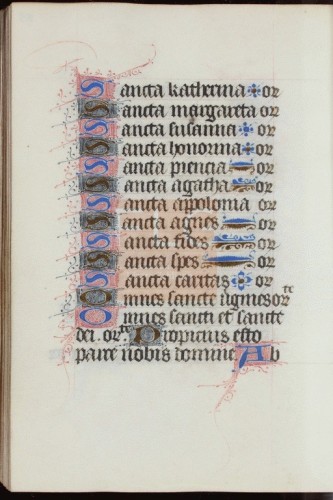 Sancta katherina or
Sancta margareta or
Sancta susanna or
Sancta honorina or
Sancta piencia or
Sancta agatha or
Sancta appolonia or
Sancta agnes or
Sancta fides or
Sancta spes or
Sancta caritas or
Omnes sancte virgines or te
Omnes sancti et sancte
dei. or te Propicius esto
parce nobis domine Ab